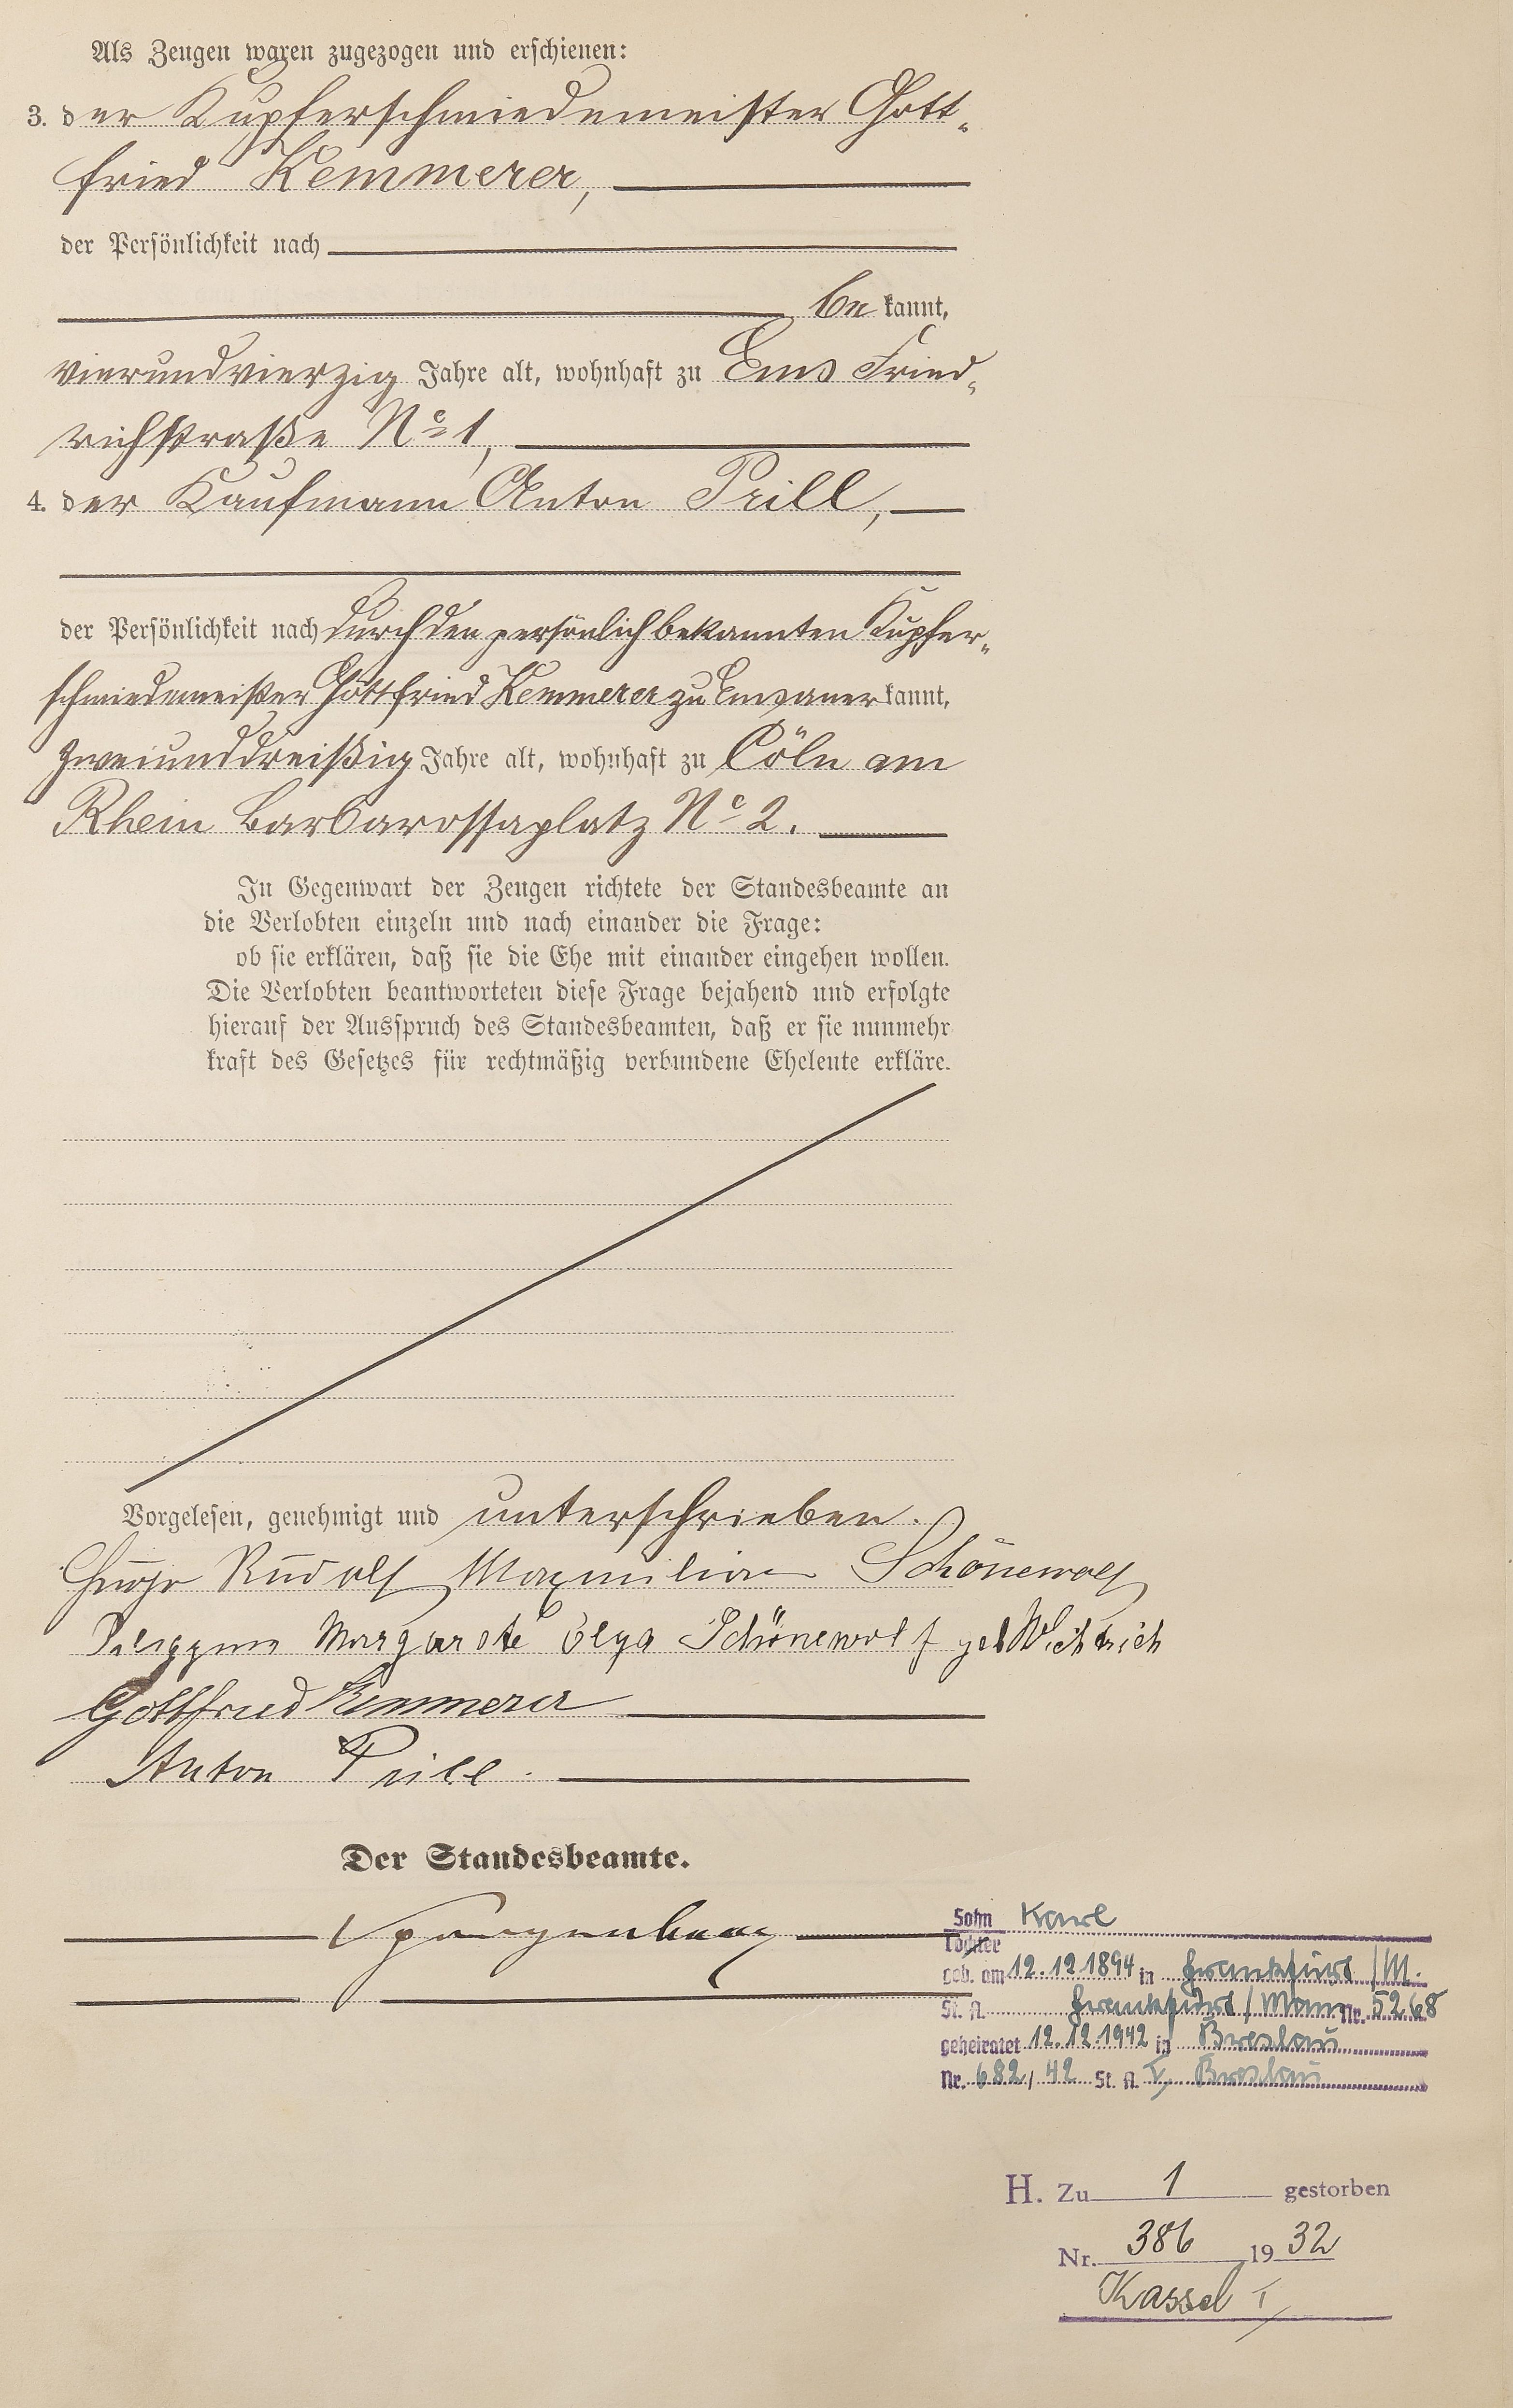 Als Zeugen waren zugezogen und erschienen:
3. der Kupferschmiedemeister Gott-
fried Kemmerer,
der Persönlichkeit nach
be kannt,
vierundvierzig Jahre alt, wohnhaft zu Ems Fried-
richstraße No 1,
4. der Kaufmann Anton Prill,
der Persönlichkeit nach durch den persönlich bekannten Kupfer-
schmiedemeister Gottfried Kemmerer zu Ems aner kannt,
zweiunddreißig Jahre alt, wohnhaft zu Cöln am
Rhein Barbarossaplatz No 2.
In Gegenwart der Zeugen richtete der Standesbeamte an
die Verlobten einzeln und nach einander die Frage:
ob sie erklären, daß sie die Ehe mit einander eingehen wollen.
Die Verlobten beantworteten diese Frage bejahend und erfolgte
hierauf der Ausspruch des Standesbeamten, daß er sie nunmehr
kraft des Gesetzes für rechtmäßig verbundene Eheleute erkläre.
Vorgelesen, genehmigt und unterschrieben.
Hugo Rudolf Maximilian Schönewolf
Margarete Olga Schönewolf geb
Gottfried Kemmerer
Anton Prill.
Der Standesbeamte.
Spangenberg
Sohn Karl
Tochter
geb. am 12.12.1894 in Frankfurt/M.
St. A. Frankfurt/Main Nr. 5268
geheiratet 12.12.1942 in Breslau
Nr. 682/42 St. A. I, Breslau
H. Zu 1 gestorben
Nr. 386 1932
Kassel I